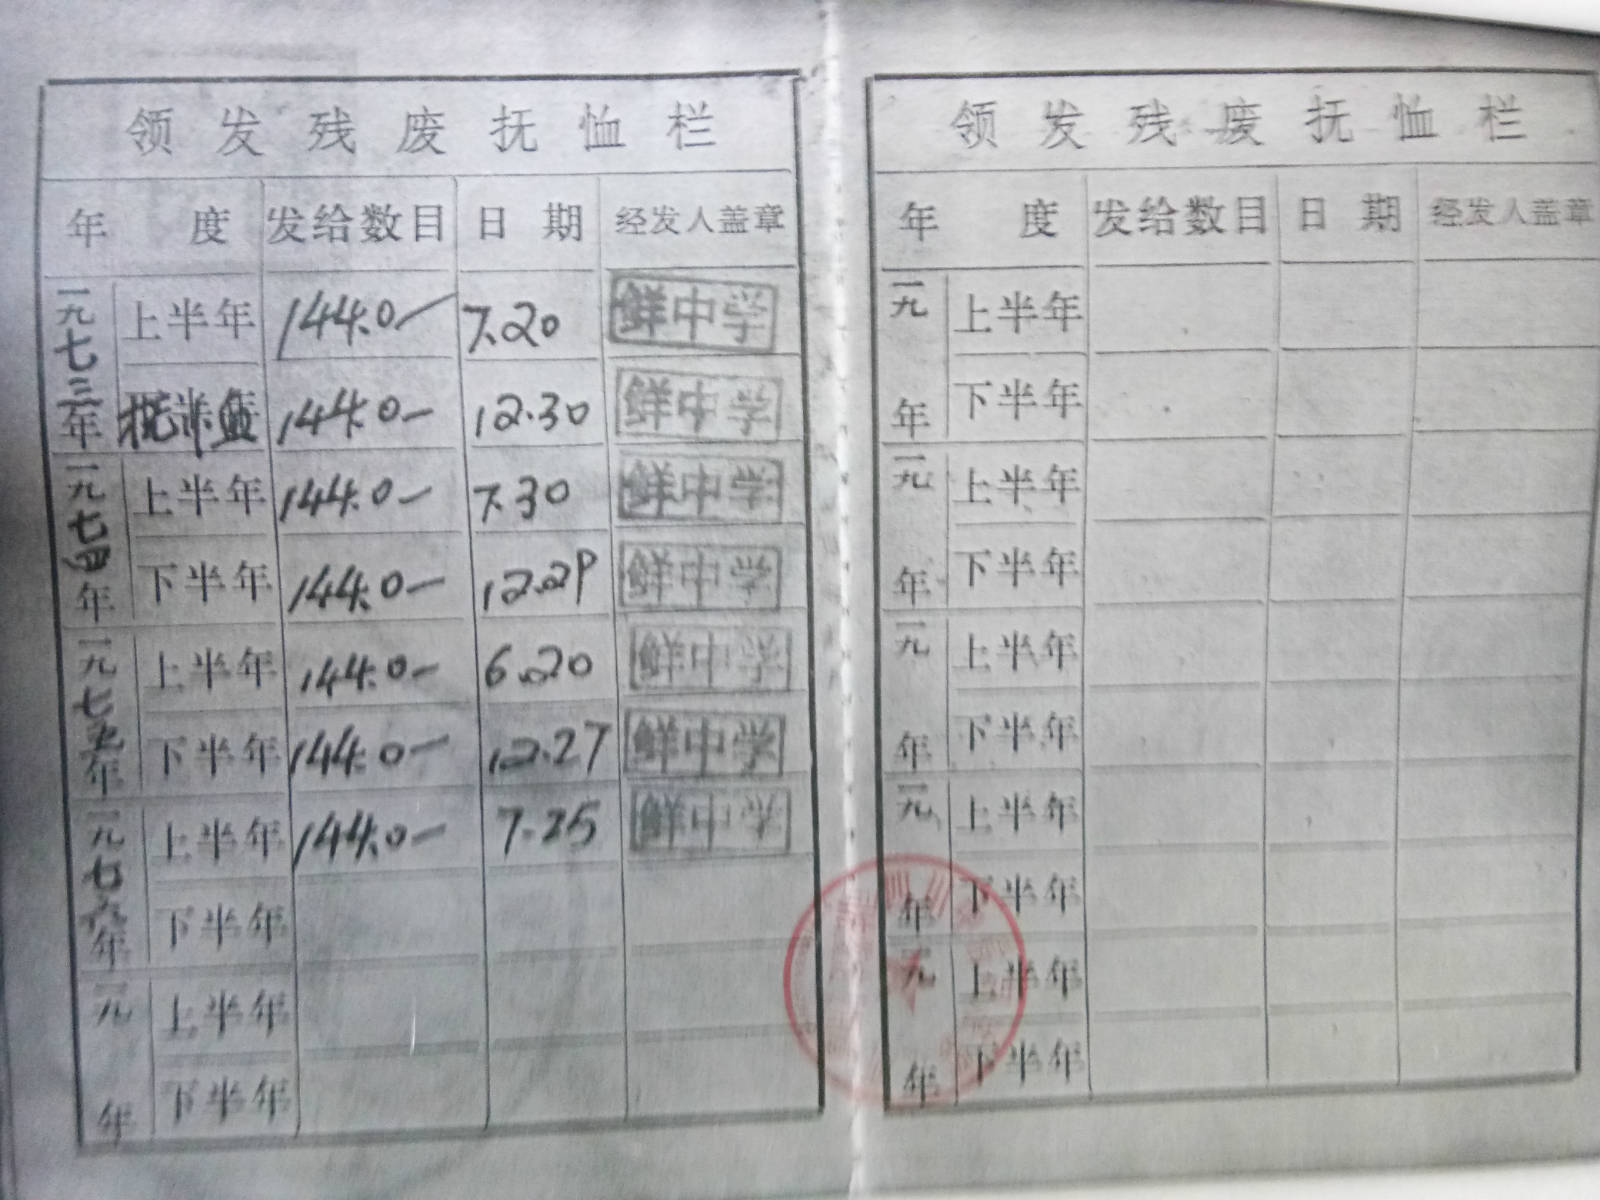 领发残废抚恤栏
年度 发给数目 日期 经发人盖章
一九七三年 上半年 144.0- 7.20 鲜中学
144.0- 12.30 鲜中学
一九七四年 上半年 144.0- 7.30 鲜中学
下半年 144.0- 12.29 鲜中学
一九七五年 上半年 144.0- 6.20 鲜中学
下半年 144.0- 12.27 鲜中学
一九七六年 上半年 144.0- 7.25 鲜中学
下半年
一九 年 上半年
下半年
领发残废抚恤栏
年度 发给数目 日期 经发人盖章
一九 年 上半年
下半年
一九 年 上半年
下半年
一九 年 上半年
下半年
一九 年 上半年
下半年
一九 年 上半年
下半年